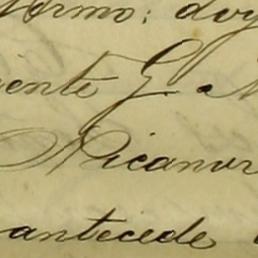 firmo: doy
iente G. N
Nicanor
antecede